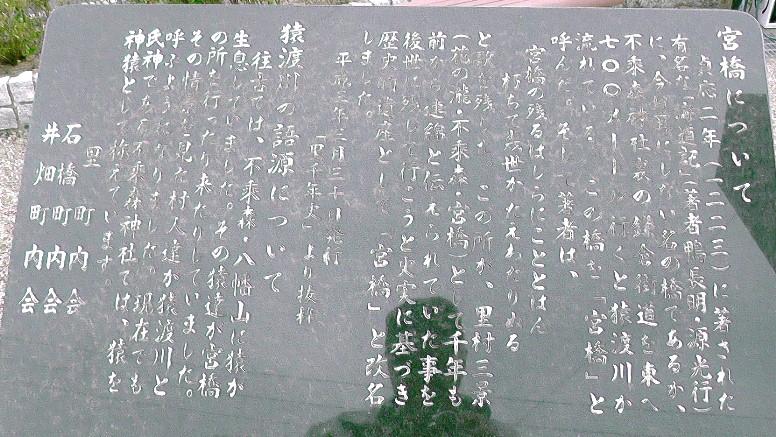 宮橋について
貞応二年(一二二三)に著された
有名な「海道記」(著者鴨長明・源光行)
に、今は耳にしない名の橋であるが、
不乗森神社裏の鎌倉街道を東へ
七〇〇メートル行くと猿渡川が
流れている。この橋を「宮橋」と
呼んだ。そして著者は、
宮橋の残るはしらにこととはん
朽ちて幾世かたえわたりぬる
と歌を残した。この所が、里村三景
(花の瀧・不乗森・宮橋)として千年も
前から連綿と伝えられていた事を
後世に残して行こうと史実に基づき
歴史的遺産として「宮橋」と改名
しました。
平成三年三月三十日発行
「里千年史」より抜粋
猿渡川の語源について
往古では、不乗森・八幡山に猿が
生息していました。その猿達が宮橋
の所を行ったり来たりしていました。
その情景を見た村人達が猿渡川と
呼ぶようになりました。現在でも
氏神である不乗森神社では、猿を
神猿として祢えています。
里町内会
石橋町内会
井畑町内会